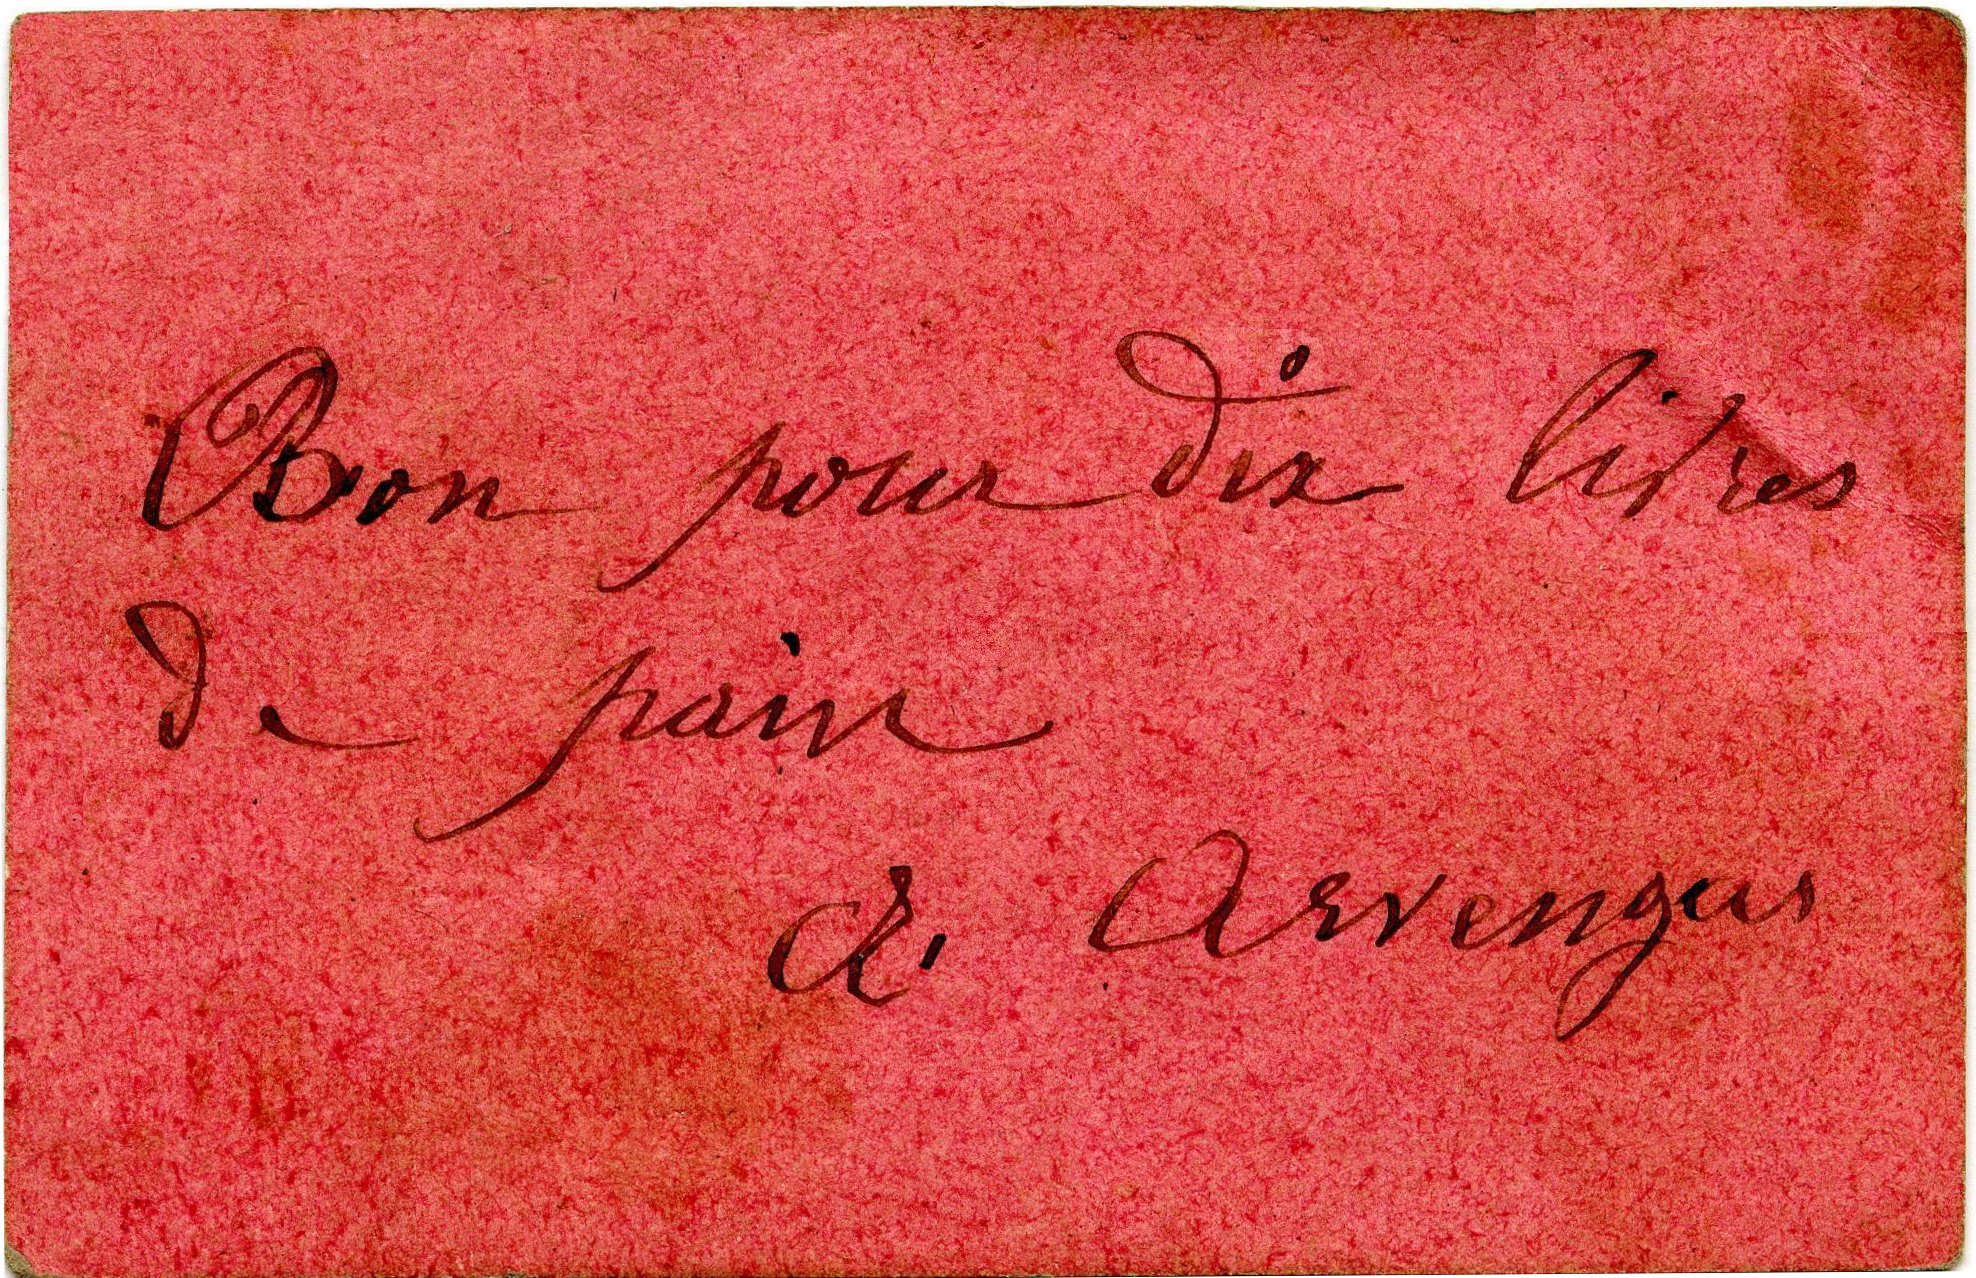 Bon pour dix livres
de pain
Arvengas